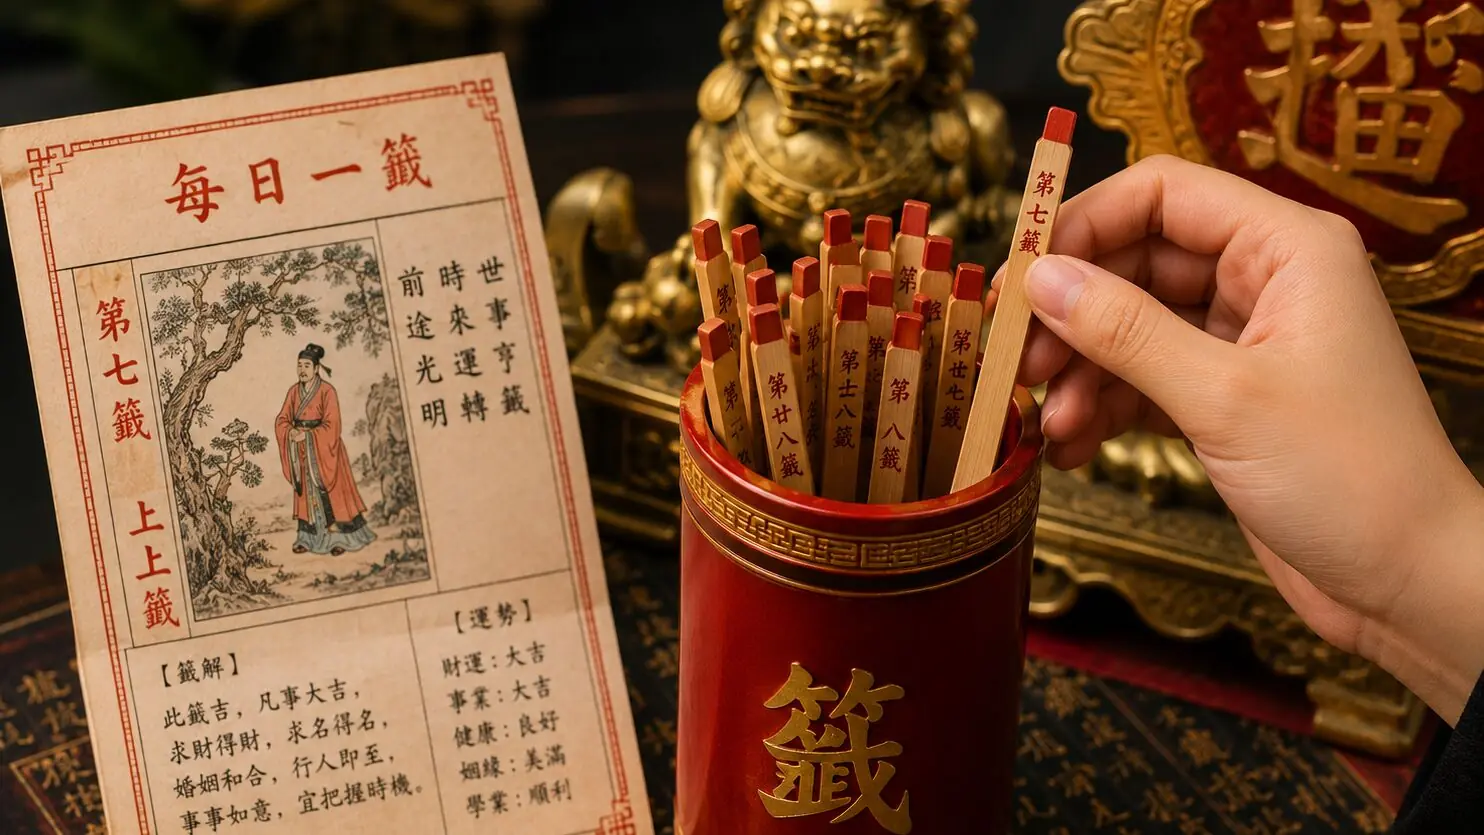 每日一籤
第七籤 上上籤
世事亨籤
時來運轉
前途光明
【籤解】
此籤吉，凡事大吉，
求財得財，求名得名，
婚姻和合，行人即至，
事事如意，宜把握時機。
【運勢】
財運：大吉
事業：大吉
健康：良好
姻緣：美滿
學業：順利
第七籤
第廿八籤
第十八籤
第八籤
第廿七籤
籤